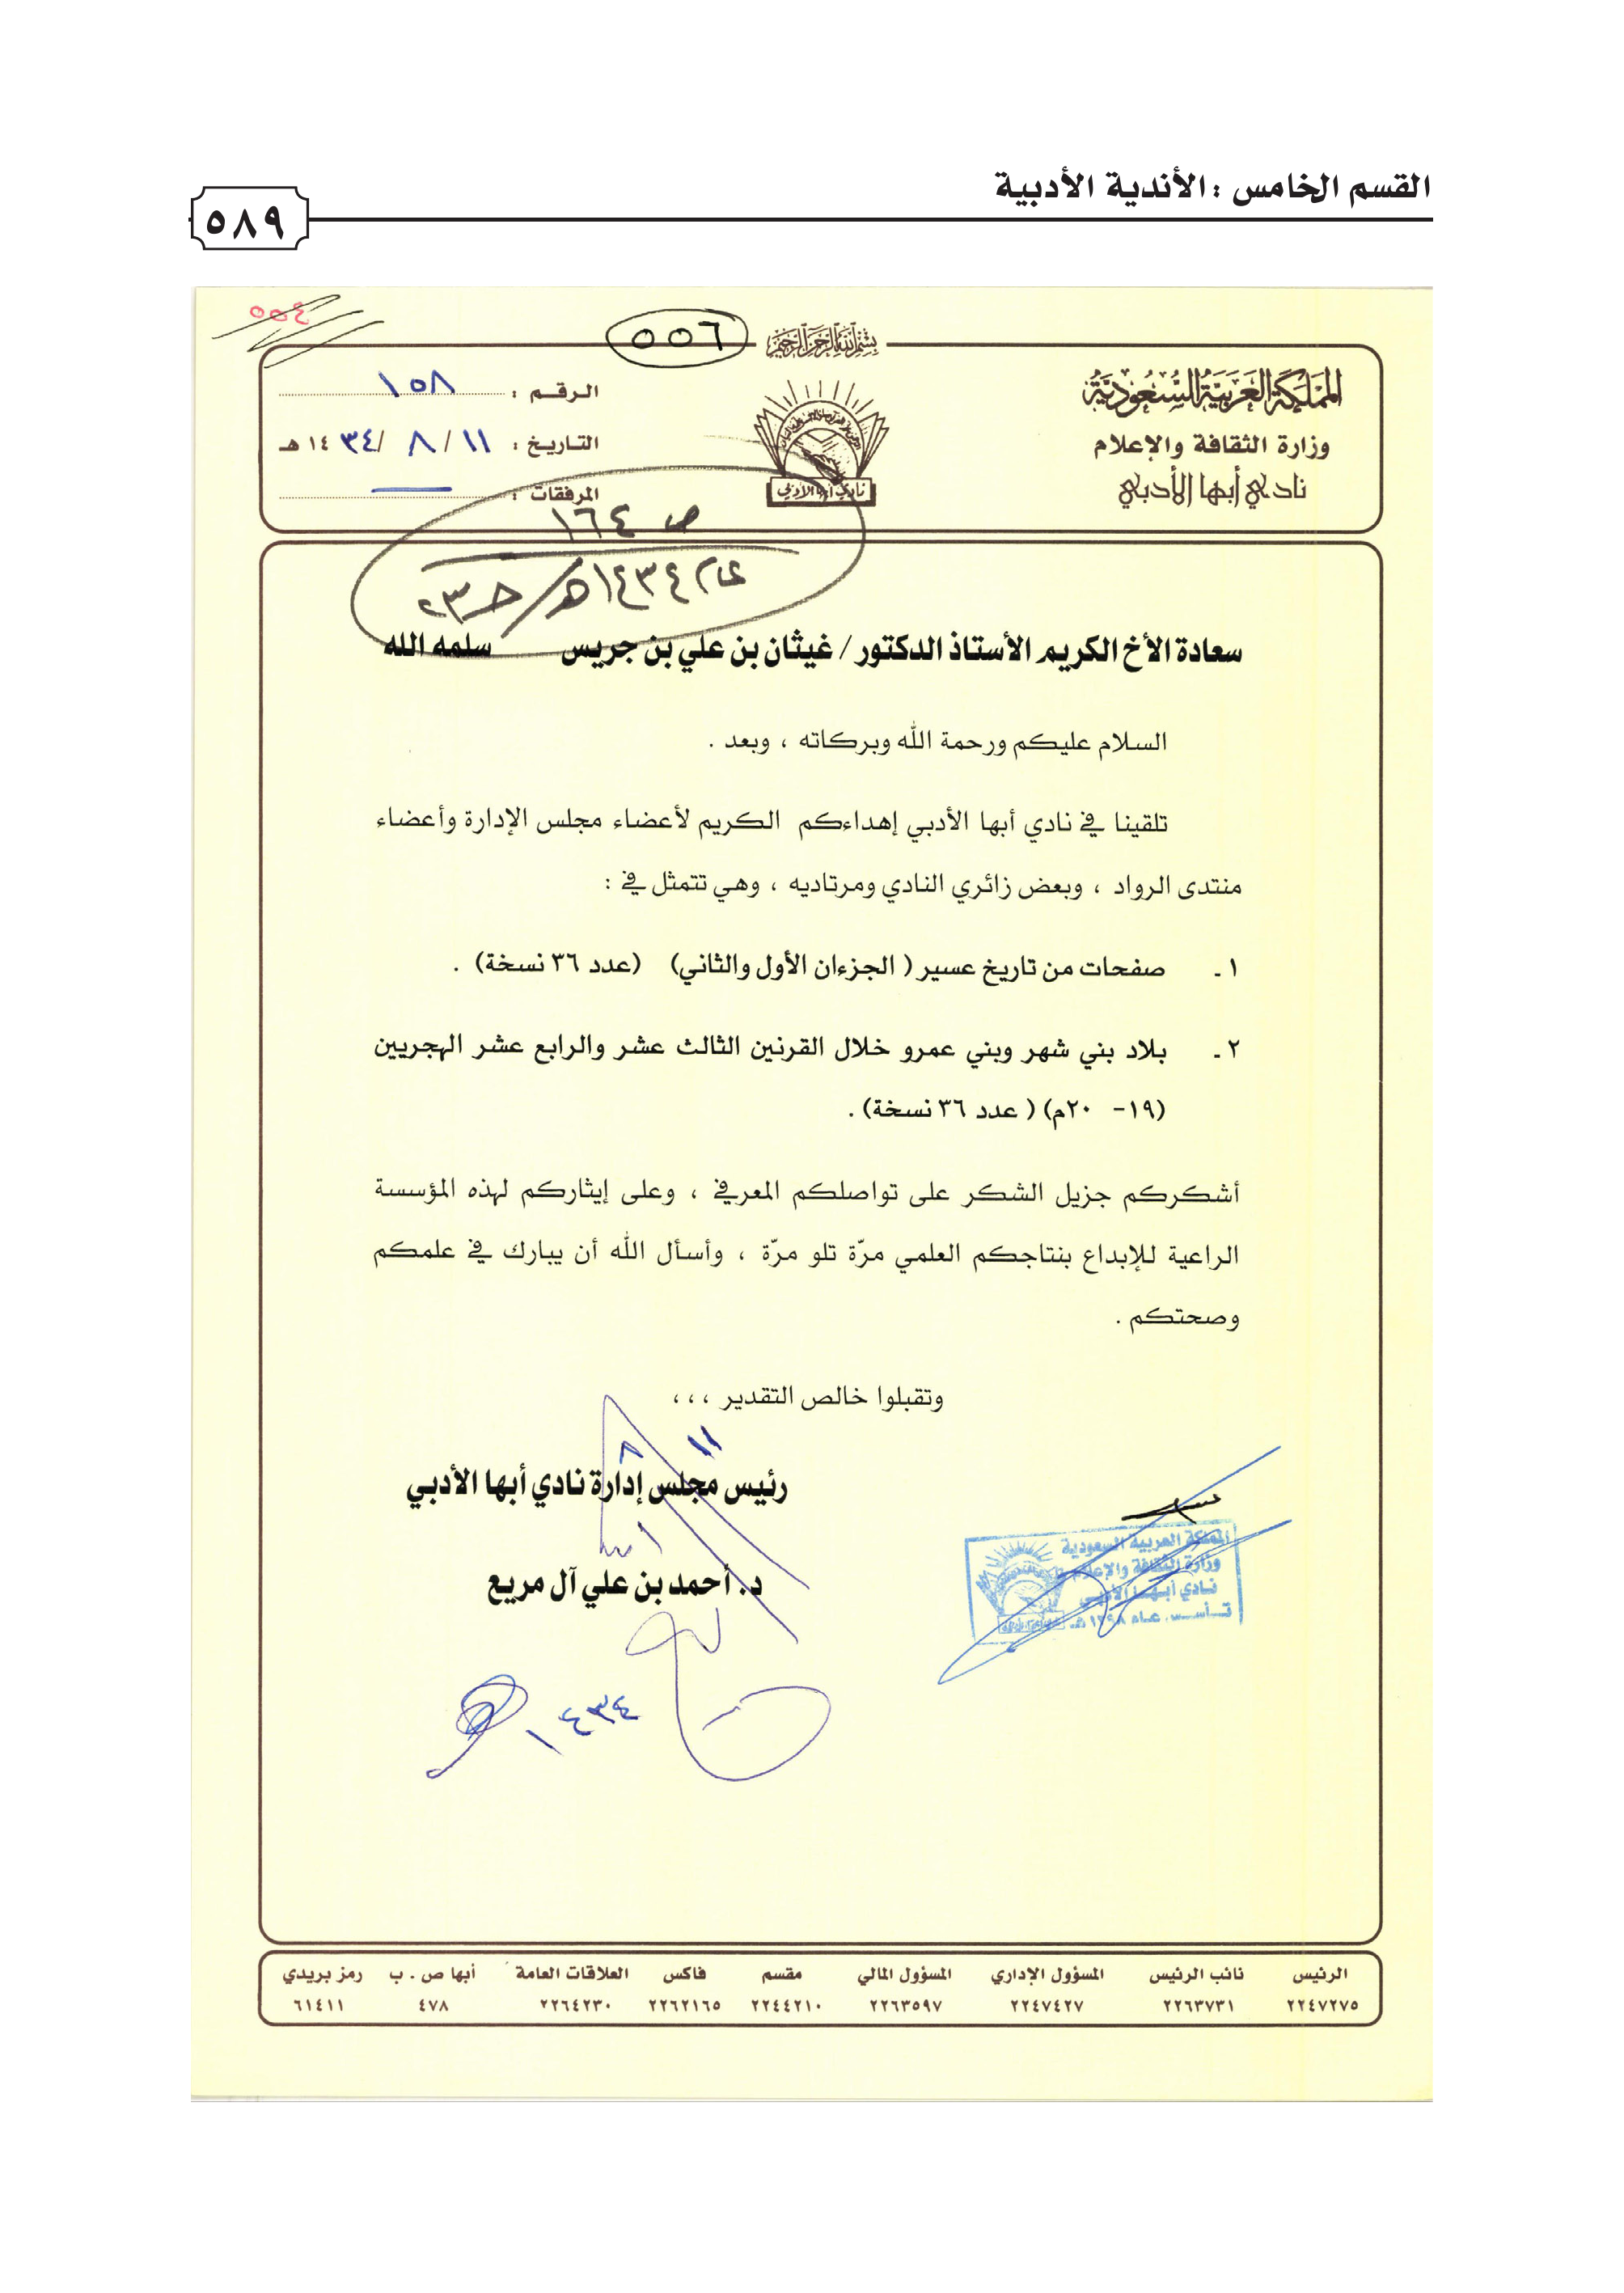 القسم الخامس : الأندية الأدبية
٥٨٩
٥٥٤
٥٥٦
بسم الله الرحمن الرحيم
المملكة العربية السعودية
وزارة الثقافة والإعلام
نادي أبها الأدبي
نادي أبها الأدبي
الرقم : ١٥٨
التاريخ : ١١ / ٨ / ١٤٣٤ هـ
المرفقات :
ص ١٦٤
عام ١٤٣٤هـ / حـ ٢٣
سعادة الأخ الكريم الأستاذ الدكتور / غيثان بن علي بن جريس سلمه الله
السلام عليكم ورحمة الله وبركاته ، وبعد .
تلقينا في نادي أبها الأدبي إهداءكم الكريم لأعضاء مجلس الإدارة وأعضاء
منتدى الرواد ، وبعض زائري النادي ومرتاديه ، وهي تتمثل في :
١ - صفحات من تاريخ عسير ( الجزءان الأول والثاني) (عدد ٣٦ نسخة) .
٢ - بلاد بني شهر وبني عمرو خلال القرنين الثالث عشر والرابع عشر الهجريين
(١٩- ٢٠م) ( عدد ٣٦ نسخة) .
أشكركم جزيل الشكر على تواصلكم المعرفي ، وعلى إيثاركم لهذه المؤسسة
الراعية للإبداع بنتاجكم العلمي مرّة تلو مرّة ، وأسأل الله أن يبارك في علمكم
وصحتكم .
وتقبلوا خالص التقدير ،،،
١١ ٨
رئيس مجلس إدارة نادي أبها الأدبي
د. أحمد بن علي آل مريع
١٤٣٤
المملكة العربية السعودية
وزارة الثقافة والإعلام
نادي أبها الأدبي
تأسس عام ١٣٩٨ هـ
الرئيس نائب الرئيس المسؤول الإداري المسؤول المالي مقسم فاكس العلاقات العامة أبها ص . ب رمز بريدي
٢٢٤٧٢٧٥ ٢٢٦٣٧٣١ ٢٢٤٧٤٢٧ ٢٢٦٣٥٩٧ ٢٢٤٤٢١٠ ٢٢٦٢١٦٥ ٢٢٦٤٢٣٠ ٤٧٨ ٦١٤١١